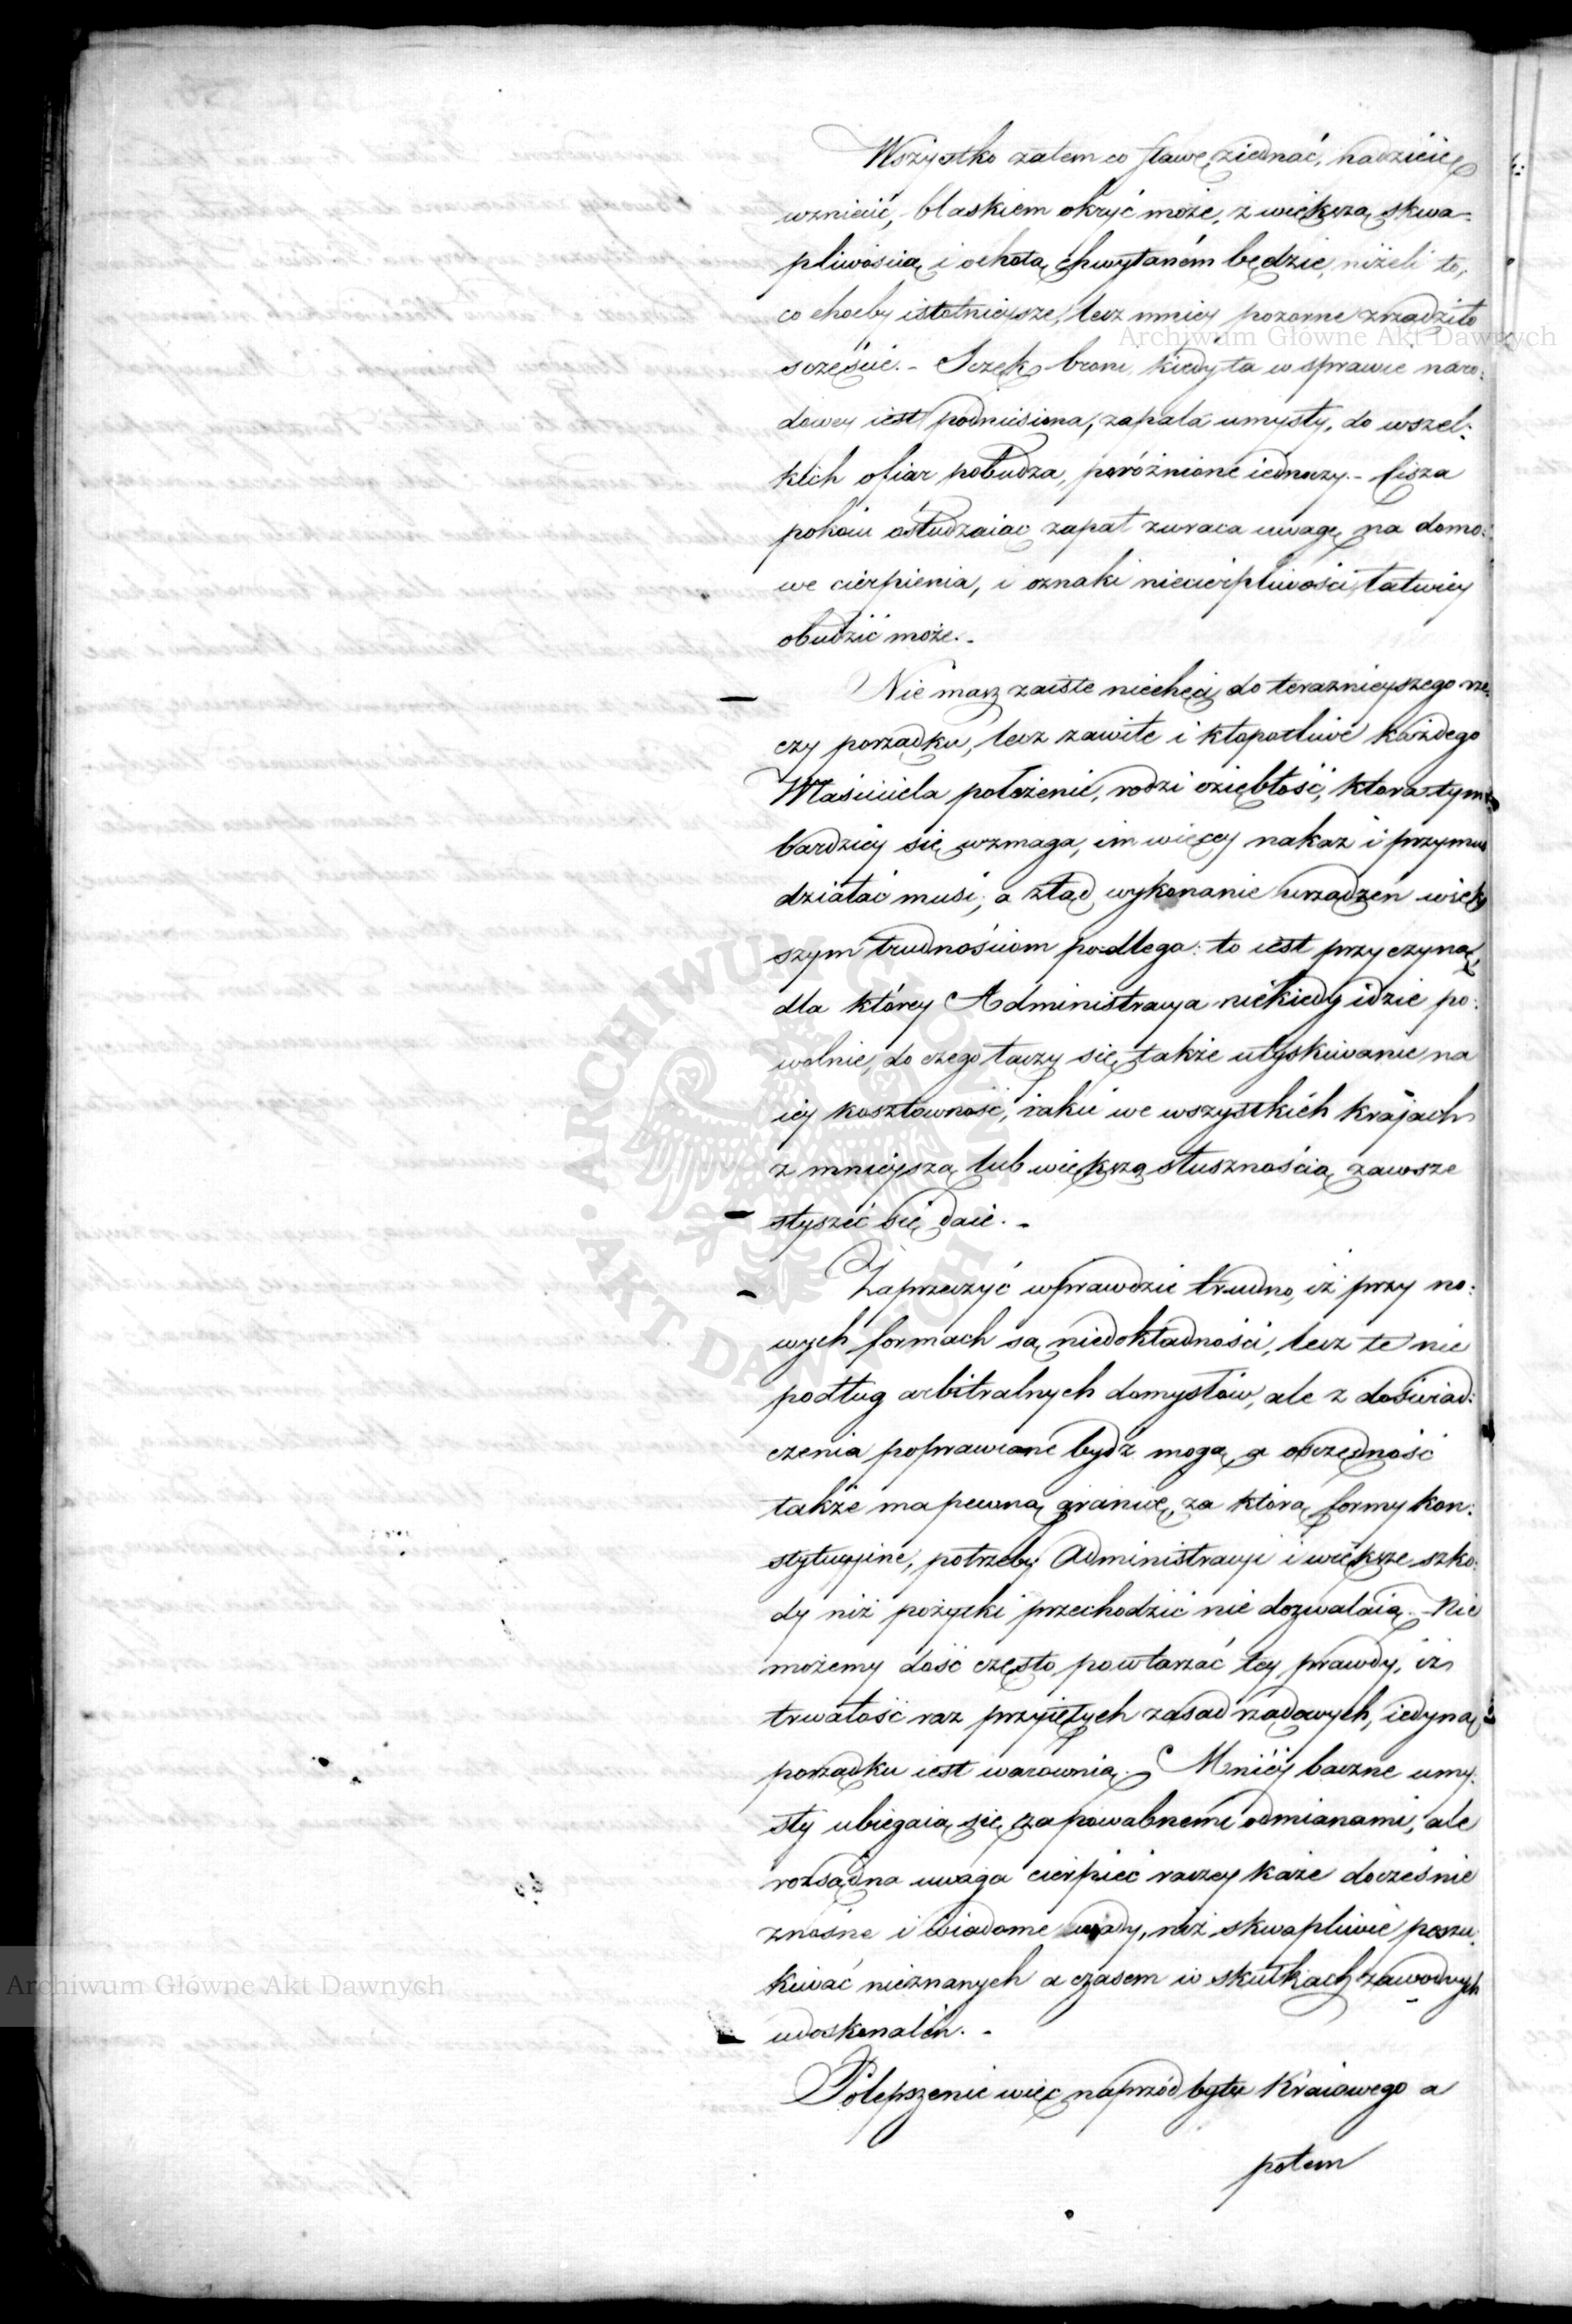 Wszystko zatem co sławę ziednać, nadzieię
wzniecić, blaskiem okryć może, z większą skwa=
pliwością i ochotą chwytaném będzie, niżeli to,
co choćby istotnieysze, lecz mniey pozorne zrządziło
szczęście. - Sczęk broni, kiedy ta w sprawie naro=
dowey iest podniesiona, zapala umysły, do wszel=
kich ofiar pobudza, poróżnione iednoczy. - Cisza
pokoiu ostudzaiąc zapał zwraca uwagę na domo=
we cierpienia, i oznaki niecierpliwości łatwiey
obudzić może. -
Nie masz zaiste niechęci do teraznieyszego rze=
czy porządku, lecz zawiłe i kłopotliwe każdego
Właściciela położenie, rodzi oziębłość, ktora tym
bardziey się wzmaga, im więcey nakaz i przymus
działać musi; a ztąd wykonanie urządzeń więk=
szym trudnościom podlega: to iest przyczyną,
dla którey Administracya niekiedy idzie po=
wolnie, do czego łączy się także utyskiwanie na
iey kosztowność, iakie we wszystkich krajach
z mnieyszą lub większą słusznością zawsze
słyszeć się daie. -
Zaprzeczyć wprawdzie trudno, iż przy no=
wych formach są niedokładności, lecz te nie
podług arbitralnych domysłów, ale z doświad=
czenia poprawiane bydź mogą, a oszczędność
także ma pewną granicę, za którą formy kon=
stytucyjne, potrzeby Administracyi i większe szko=
dy niż pożytki przechodzić nie dozwalaią. - Nie
możemy dość często powtarzać tey prawdy, iż
trwałość raz przyiętych zasad rządowych, iedyną
porządku iest warownią. Mniéy baczne umy=
sły ubiegaią się za powabnemi odmianami, ale
rozsądna uwaga cierpieć raczey każe docześnie
znośne i wiadome wady, niż skwapliwie poszu=
kiwać nieznanych a czasem w skutkach zawodnych
udoskonaleń. -
Polepszenie więc naprzód bytu Kraiowego a
potem
Archiwum Główne Akt Dawnych
Archiwum Główne Akt Dawnych
ARCHIWUM GŁÓWNE
AKT DAWNYCH